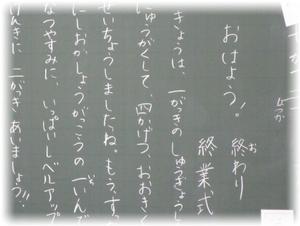 おはよう!
終わり
お
終業式
きょうは、一がっきのしゅうぎょうし
にゅうがくして、四かげつ、おおきく
せいちょうしましたね。もう、すっ
にしおかしょうがっこうの一いんで
なつやすみに、いっぱいレベルアップ
げんきに、二がっき あいましょう!!